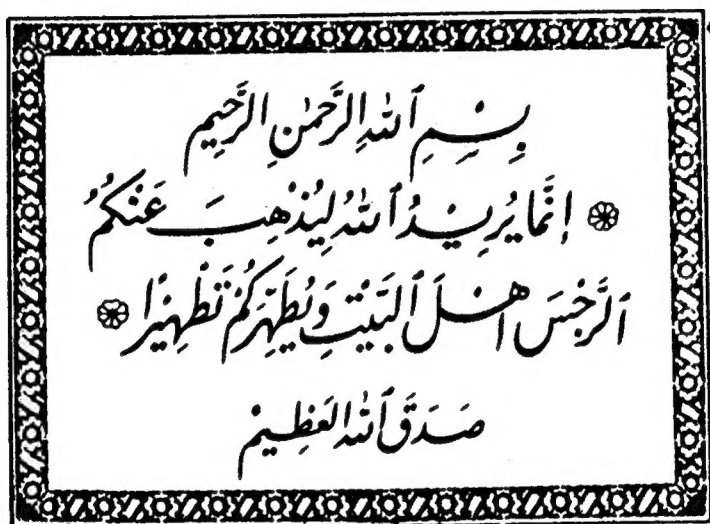 بِسْمِ ٱللهِ الرَّحْمٰنِ الرَّحِيمِ
إِنَّمَا يُرِيْدُ ٱللهُ لِيُذْهِبَ عَنْكُمُ
ٱلرِّجْسَ اَهْلَ ٱلْبَيْتِ وَيُطَهِّرَكُمْ تَطْهِيْرًا
صَدَقَ ٱللهُ العَظِيمْ